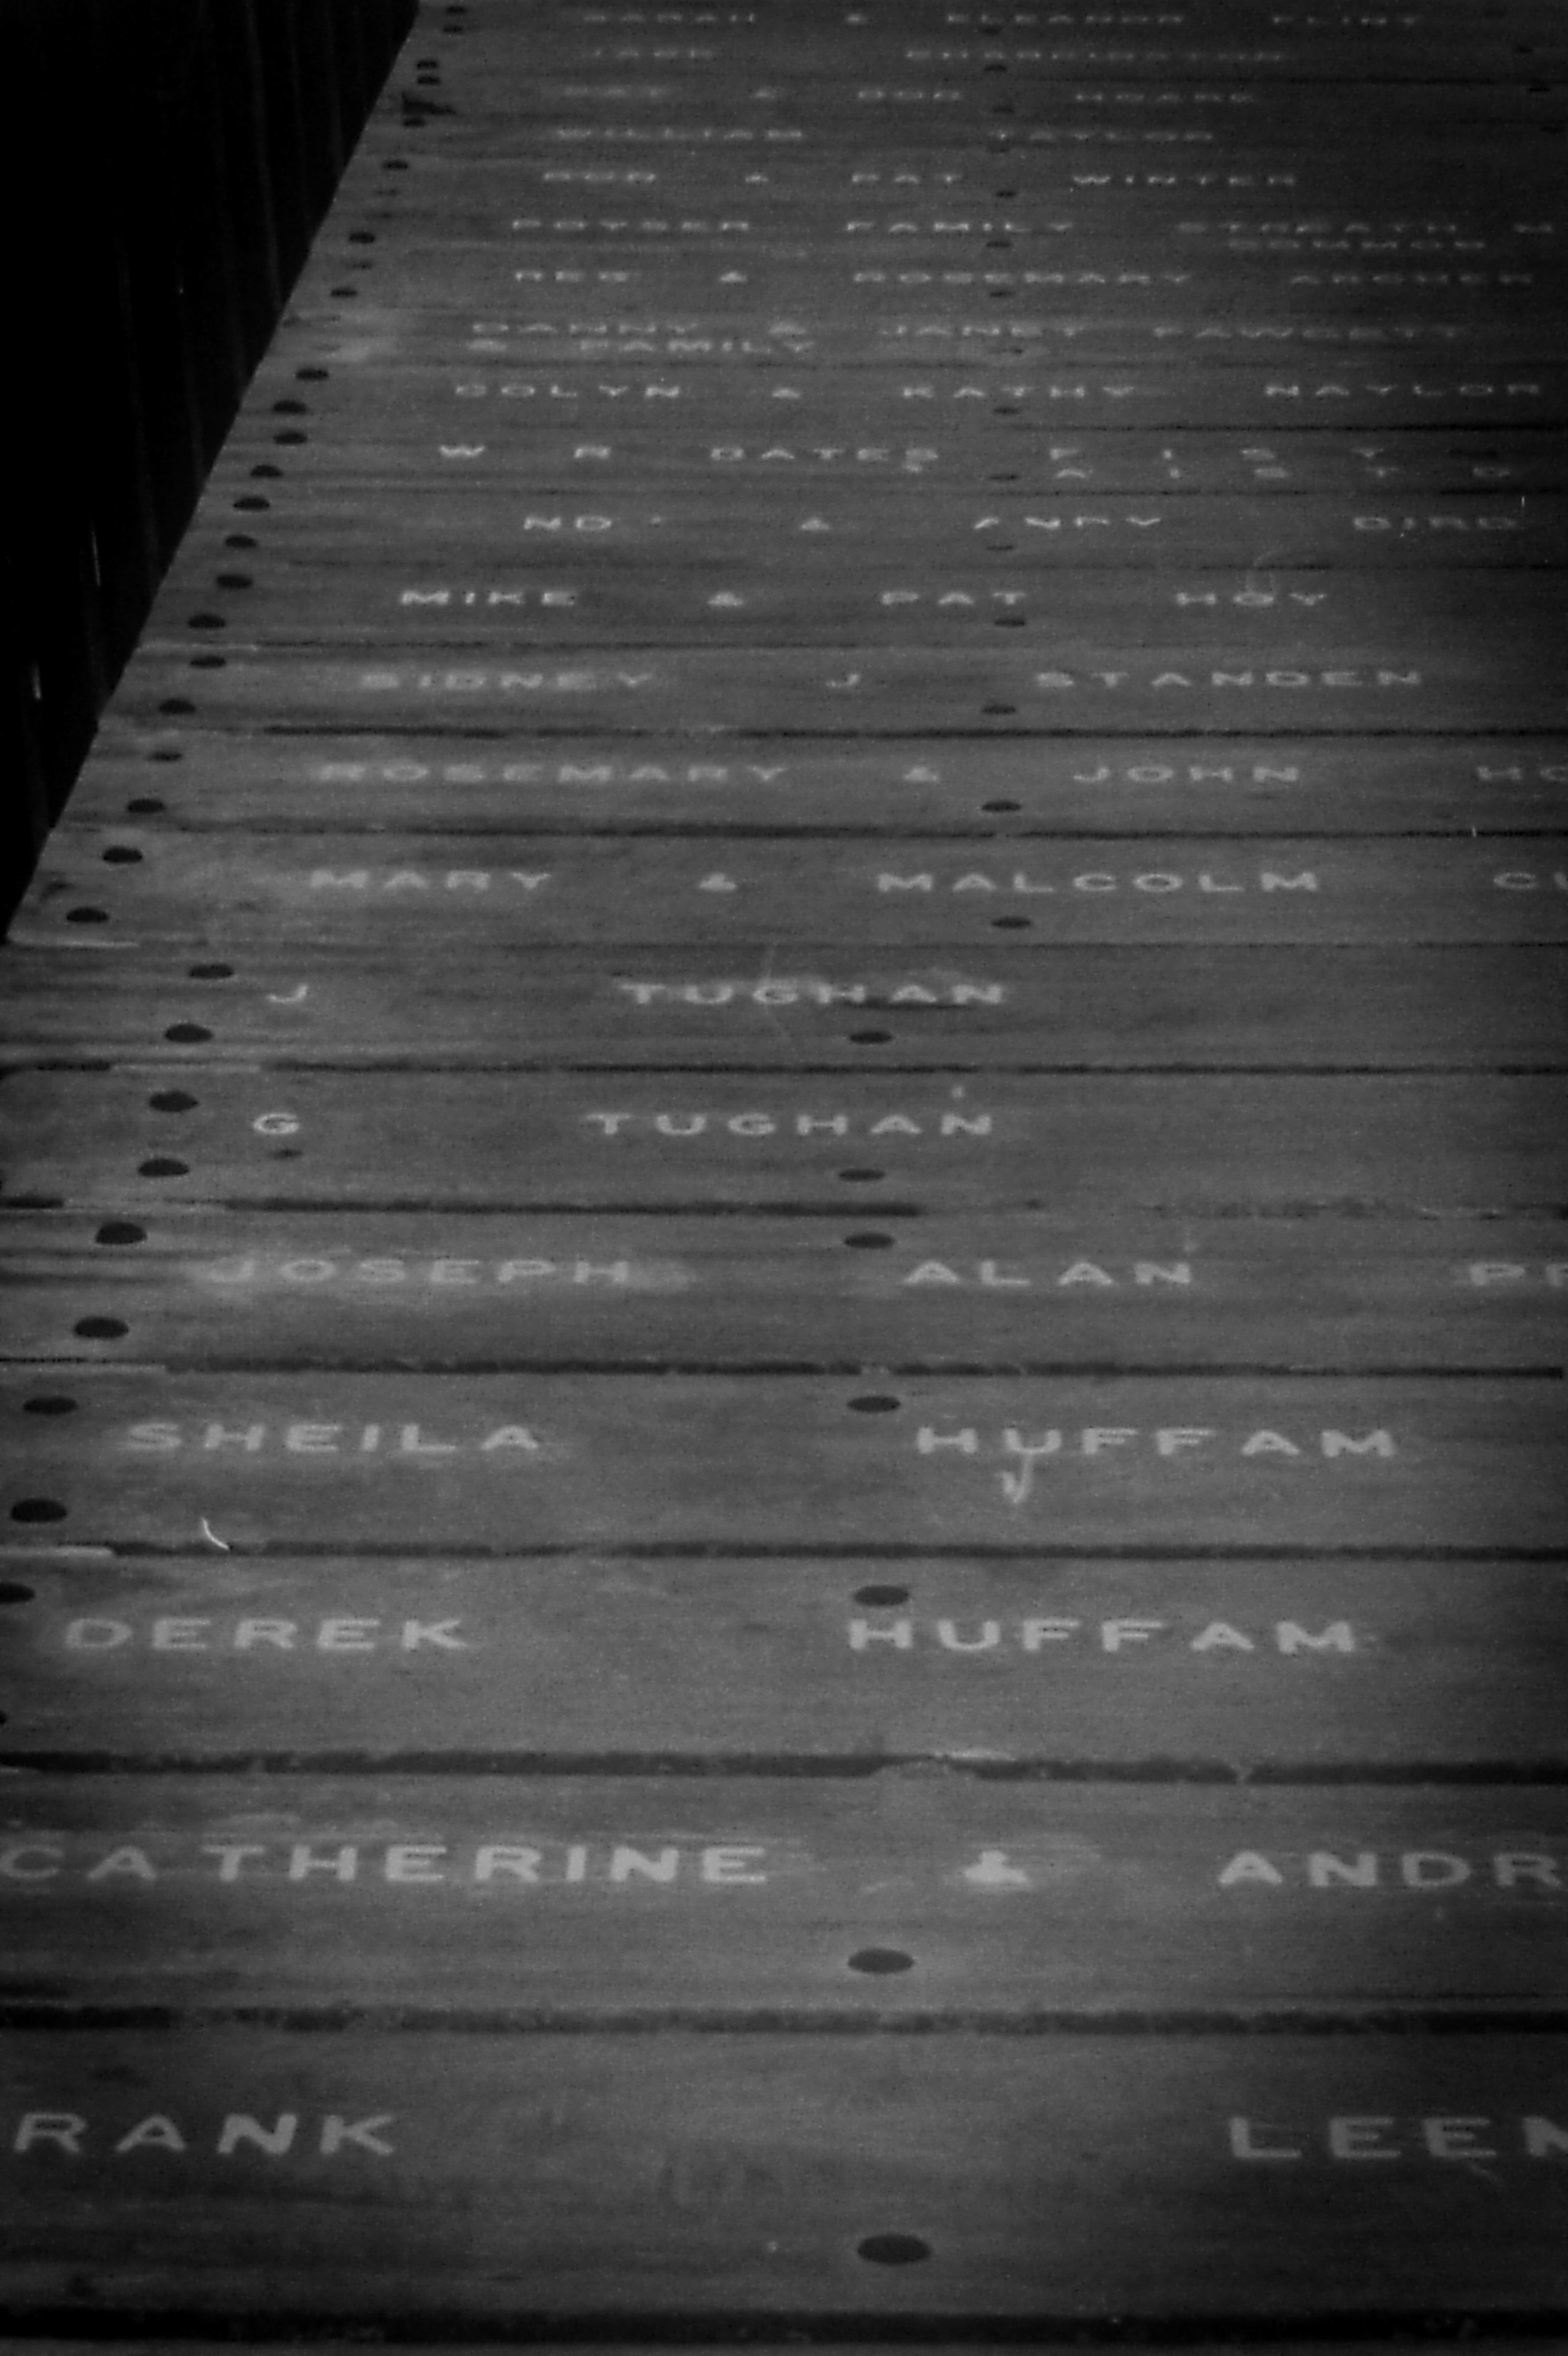 SARAH & ELEANOR FLINT
JACK
& HOARE
WILLIAM TAYLOR
& PAT WINTER
POYSER FAMILY
COMMON
REG & ROSEMARY ARCHER
DANNY & JANET FAWCETT
& FAMILY
COLYN & KATHY NAYLOR
W R
& BIRD
MIKE & PAT HOY
SIDNEY J STANDEN
ROSEMARY & JOHN HO
MARY & MALCOLM CU
J TUGHAN
G TUGHAN
JOSEPH ALAN
SHEILA HUFFAM
DEREK HUFFAM
CATHERINE & ANDR
RANK LEEM